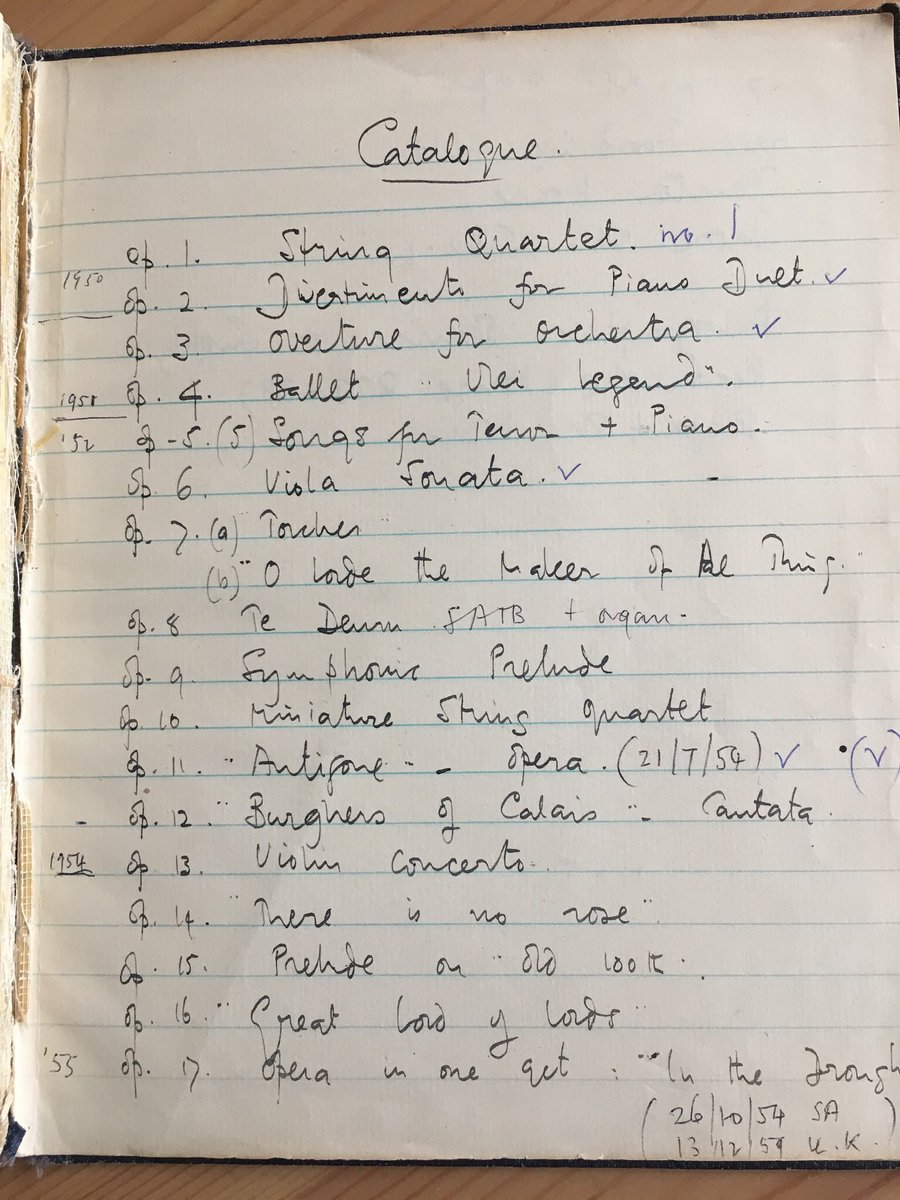 Catalogue.
op. 1. String Quartet. no. 1
1950
op. 2. Divertimento for Piano Duet. ✓
op. 3. Overture for orchestra. ✓
op. 4. Ballet " Vlei Legend".
1951
'52 op - 5. (5) Songs for Tenor + Piano.
op. 6. Viola Sonata. ✓ -
op. 7. (a) Torches
(b) " O Lorde the Maker of Al Thing.
op. 8 Te Deum SATB + organ -
op. 9. Symphonic Prelude
op. 10. Miniature String Quartet
op. 11. " Antigone " - opera. (21/7/54) ✓ • (✓)
- op. 12 " Burghers of Calais " - Cantata.
1954 op. 13. Violin Concerto.
op. 14. " There is no rose "
op. 15. Prelude on " Old 100th .
op. 16 " Great Lord of Lords "
'55 op. 17. Opera in one act : " In the Drough
( 26/10/54 SA )
13/12/59 U.K.